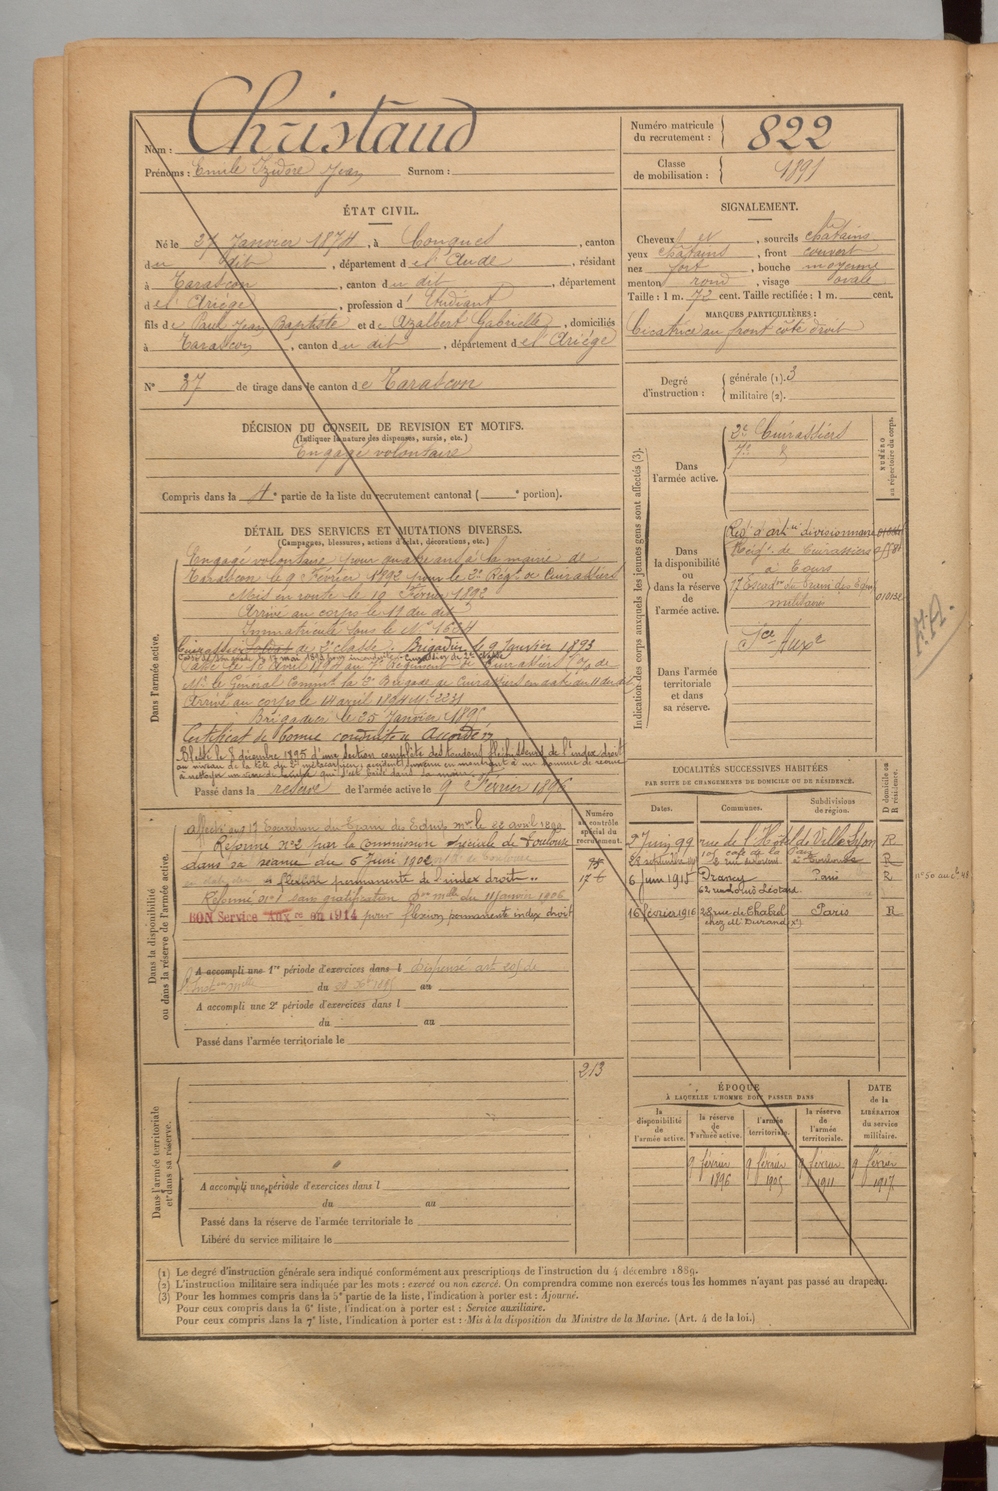 Nom : Christaud
Prénoms : Emile Izidore Jean Surnom :
Numéro matricule du recrutement : 822
Classe de mobilisation : 1891
ÉTAT CIVIL.
Né le 27 Janvier 1874, à Conques, canton
du dit, département de l'Aude, résidant
à Tarascon, canton du dit, département
de l'Ariège, profession d'Etudiant
fils de Paul Jean Baptiste et de Azalbert Gabrielle, domiciliés
à Tarascon, canton du dit, département de l'Ariège
N° 37 de tirage dans le canton de Tarascon
SIGNALEMENT.
Cheveux et, sourcils châtains
yeux châtains, front couvert
nez fort, bouche moyenne
menton rond, visage ovale
Taille : 1 m. 72 cent. Taille rectifiée : 1 m. cent.
MARQUES PARTICULIÈRES :
Cicatrice au front côté droit
Degré d'instruction : générale (1). 3
militaire (2).
DÉCISION DU CONSEIL DE REVISION ET MOTIFS.
(Indiquer la nature des dispenses, sursis, etc.)
Engagé volontaire
Compris dans la 4e partie de la liste du recrutement cantonal ( e portion).
DÉTAIL DES SERVICES ET MUTATIONS DIVERSES.
(Campagnes, blessures, actions d'éclat, décorations, etc.)
Dans l'armée active.
Engagé volontaire pour quatre ans à la mairie de
Tarascon le 9 Février 1892 pour le 2e Régt de Cuirassiers
Mis en route le 10 Février 1892
Arrivé au corps le 11 du dit
Immatriculé sous le No 1634
Cuirassier Soldat de 2e classe. Brigadier le 9 Janvier 1893
Passé le 10 Avril 1894 au 7e Régiment de Cuirassiers
Mr le Général Commt la 3e Brigade de Cuirassiers en date du 11 du dit
Arrivé au corps le 14 avril 1894 No 2231
Brigadier le 25 Janvier 1895
Certificat de bonne conduite Accordé
Blessé le 8 décembre 1895 d'une section complète des tendons fléchisseurs de l'index droit
au niveau de la tête du 2e métacarpien, accident survenu en montrant à un homme de recrue
Passé dans la réserve de l'armée active le 9 Février 1896
Indication des corps auxquels les jeunes gens sont affectés (3).
NUMÉRO au répertoire du corps.
Dans l'armée active.
2e Cuirassiers
7e
Dans la disponibilité ou dans la réserve de l'armée active.
Regt d'artie divisionnaire
Régt de Cuirassiers
à Tours
17 Escadon du Train des Eqges
militaires
Dans l'armée territoriale et dans sa réserve.
Sce Auxe
Dans la disponibilité ou dans la réserve de l'armée active.
Numéro au contrôle spécial du recrutement.
affecté au 17 Escadron du Train des Equip. mres le 22 avril 1899
Réformé no 2 par la Commission spéciale de Toulouse
dans sa séance du 6 Juin 1902
flexion permanente de l'index droit
Réformé no 1 sans gratification
BON Service Auxre en 1914 pour flexion permanente index droit
A accompli une 1re période d'exercices dans l dispensé
du au
A accompli une 2e période d'exercices dans l
du au
Passé dans l'armée territoriale le
LOCALITÉS SUCCESSIVES HABITÉES
PAR SUITE DE CHANGEMENTS DE DOMICILE OU DE RÉSIDENCE.
D domicile ou R résidence.
Dates. Communes. Subdivisions de région.
27 Juin 99 rue de l'Hôtel de Ville Lyon R
6 Juin 1915 Drancy Paris R
62 rue Louis Léotard
16 février 1916 28 rue de Chabrol Paris R
chez Mr Durand
Dans l'armée territoriale et dans sa réserve.
213
A accompli une période d'exercices dans l
du au
Passé dans la réserve de l'armée territoriale le
Libéré du service militaire le
ÉPOQUE
À LAQUELLE L'HOMME DOIT PASSER DANS
la disponibilité de l'armée active. la réserve de l'armée active. l'armée territoriale. la réserve de l'armée territoriale.
DATE de la LIBÉRATION du service militaire.
9 février 1896 9 février 1905 9 février 1911 9 février 1917
(1) Le degré d'instruction générale sera indiqué conformément aux prescriptions de l'instruction du 4 décembre 1889.
(2) L'instruction militaire sera indiquée par les mots : exercé ou non exercé. On comprendra comme non exercés tous les hommes n'ayant pas passé au drapeau.
(3) Pour les hommes compris dans la 5e partie de la liste, l'indication à porter est : Ajourné.
Pour ceux compris dans la 6e liste, l'indication à porter est : Service auxiliaire.
Pour ceux compris dans la 7e liste, l'indication à porter est : Mis à la disposition du Ministre de la Marine. (Art. 4 de la loi.)